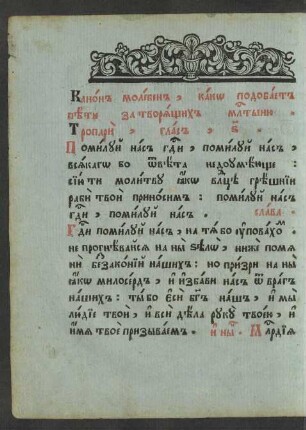 Канѡ́нъ моле́бенъ, ка́кѡ подоба́етъ
пѣ́ти за творѧ́щихъ мл҃тыню.
Тропари̑, гла́съ, ѕ҃.
Поми́луй на́съ гд҇и, поми́луй на́съ,
всѧ́кагѡ бо ѿвѣ́та недоумѣ́юще:
сїи́ ти моли́тву ꙗ҆́кѡ вл҃цѣ грѣ́шнїи
раби̑ твоѝ прино́симъ: поми́луй на́съ
гд҇и, поми́луй на́съ. Сла́ва:
Гд҇и поми́луй на́съ, на тѧ́ бо ᲂу҆пова́хомъ,
не прогнѣ́вайсѧ на ны̀ ѕѣлѡ̀, ниже́ помѧ
нѝ беззако́нїй на́шихъ: но при́зри на ны̀
ꙗ҆́кѡ милосе́рдъ, и҆ и҆зба́ви на́съ ѿ вра̑гъ
на́шихъ: ты́ бо є҆сѝ бг҃ъ на́шъ, и҆ мы̀
лю́дїе твоѝ, и҆ всѝ дѣла̀ рꙋкꙋ̀ твоє́ю, и҆
и҆́мѧ твоѐ призыва́емъ. И҆ ны́нѣ. Мл҇рдїѧ